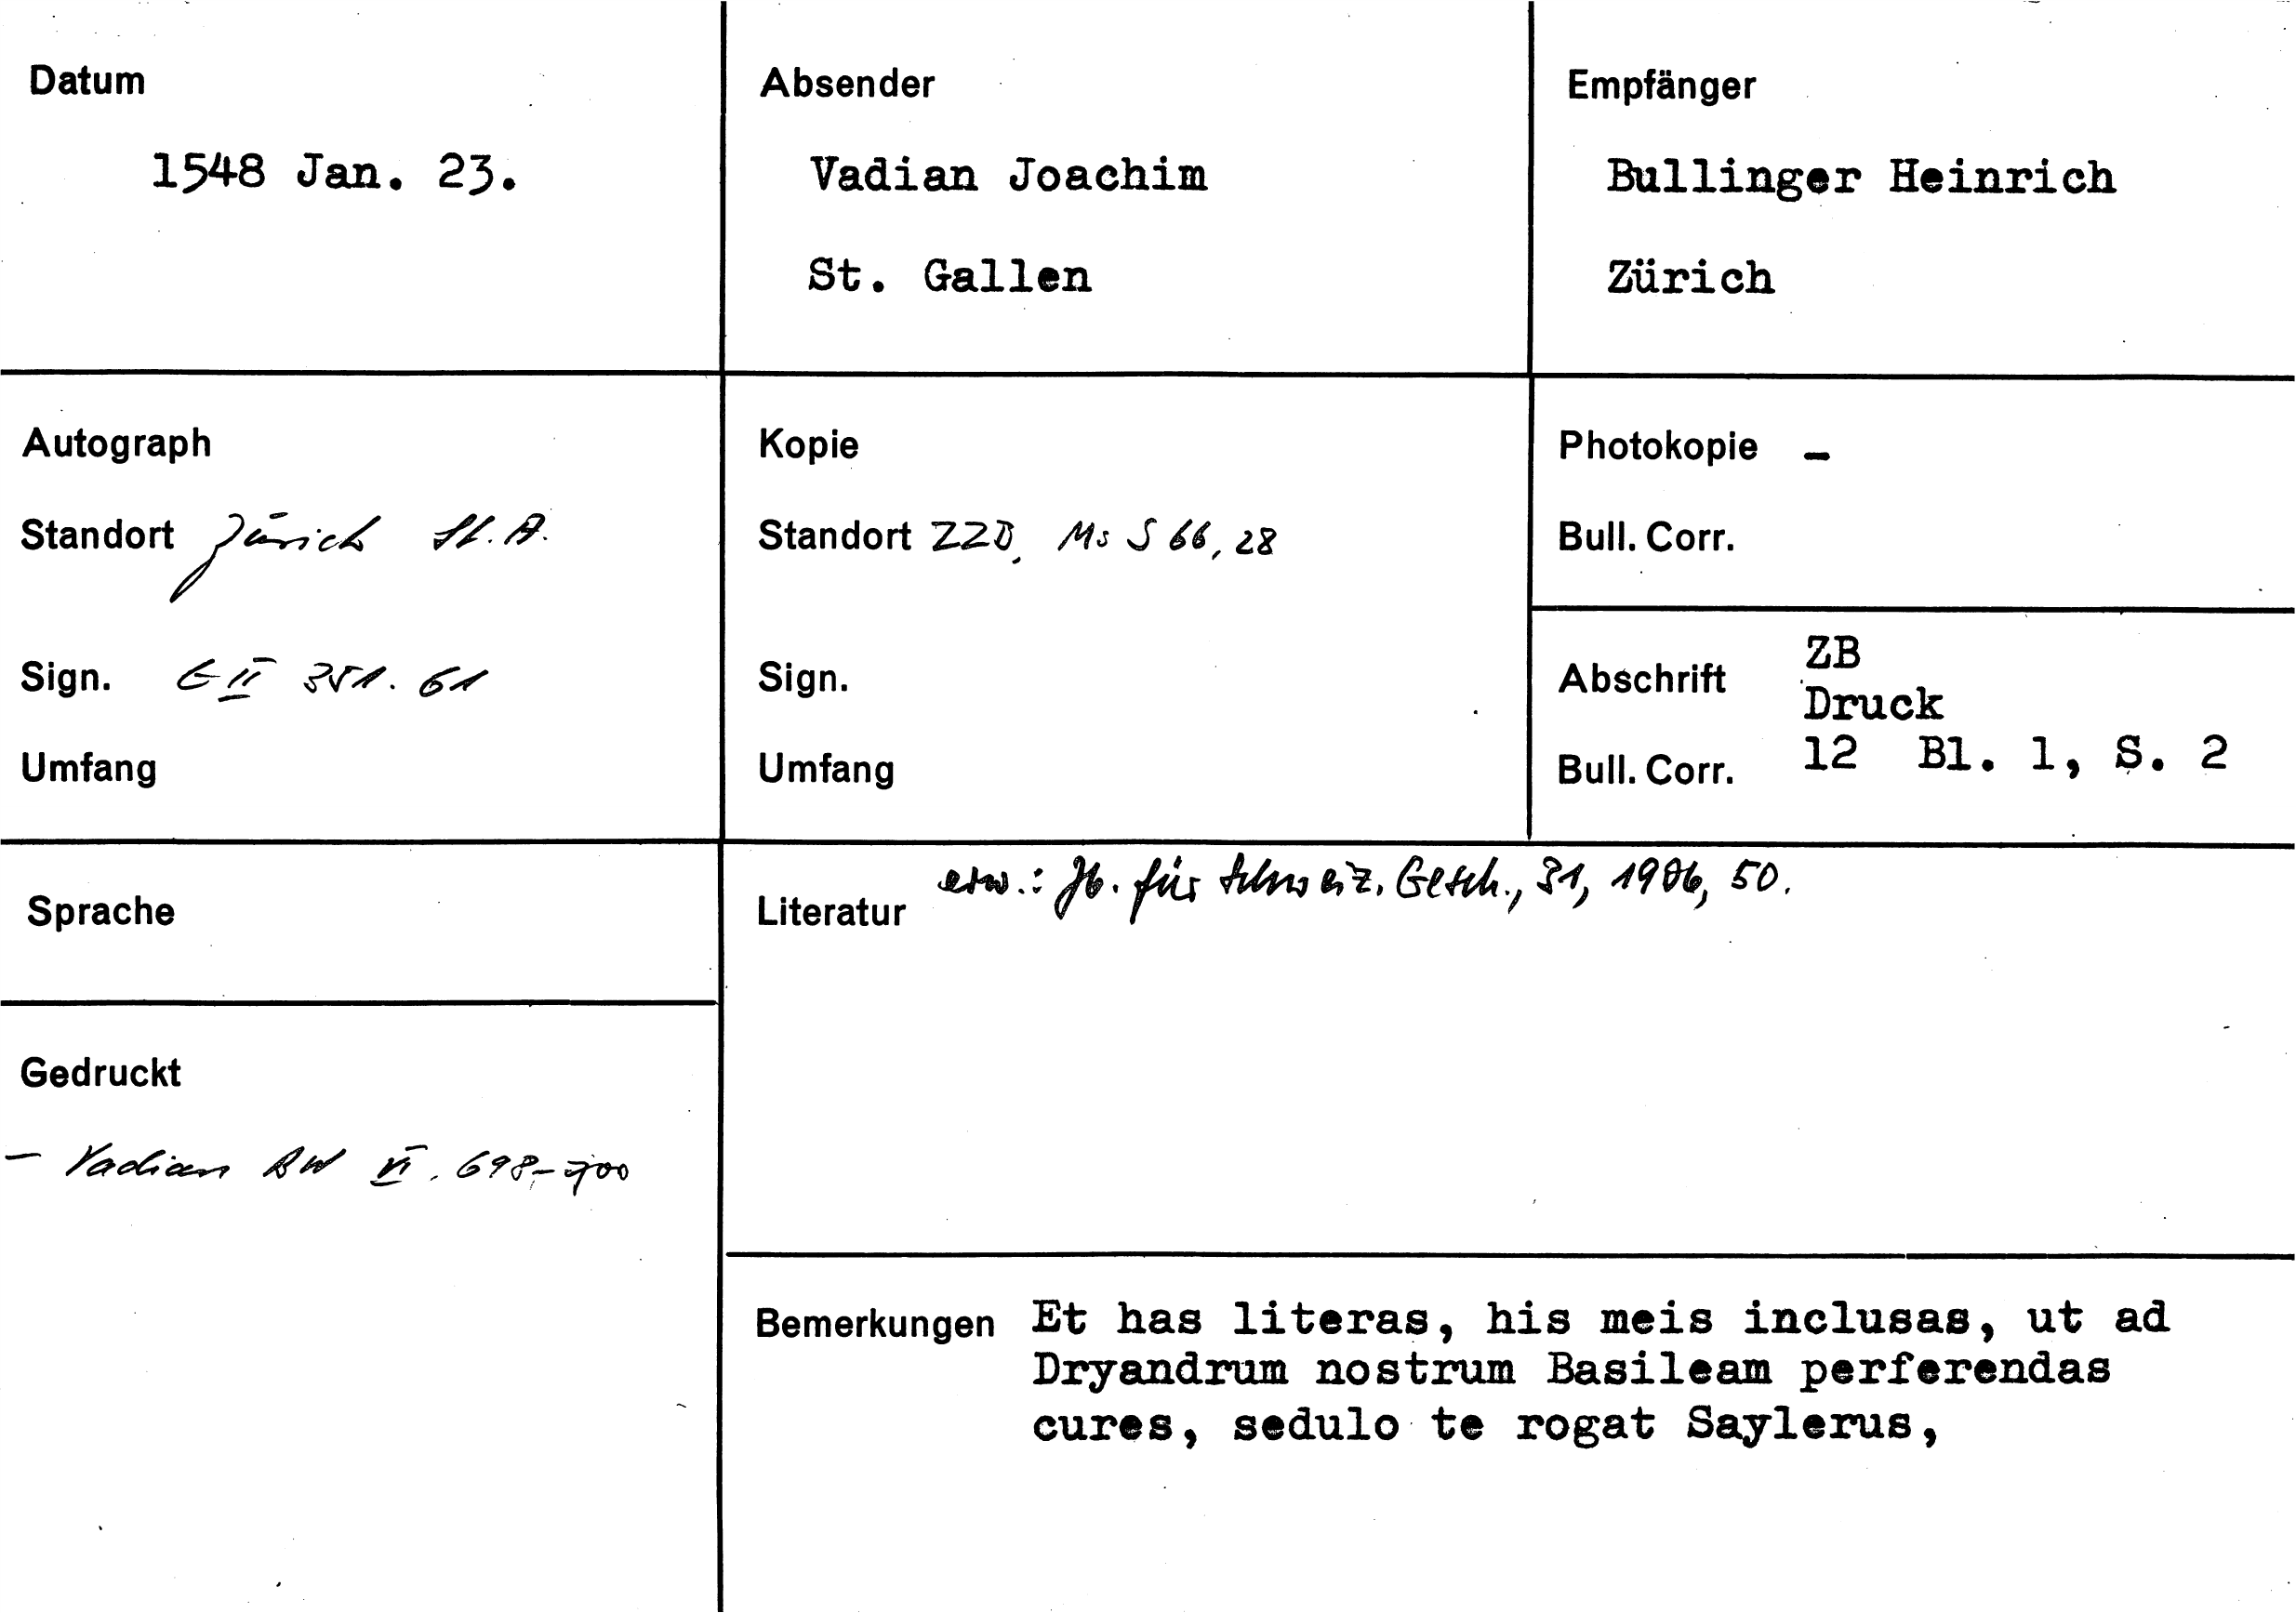 Datum
1548 Jan. 23.
Absender
Vadian Joachim
St. Gallen
Empfänger
Bullinger Heinrich
Zürich
Autograph
Standort Zürich St. A.
Sign. E II 351. 61
Umfang
Kopie
Standort ZZB, Ms S 66, 28
Sign.
Umfang
Photokopie –
Bull. Corr.
Abschrift ZB
Druck
Bull. Corr. 12 Bl. 1, S. 2
Sprache
Gedruckt
– Vadian BW VI. 698–700
Literatur erw.: Jb. für Schweiz. Gesch., 31, 1906, 50.
Bemerkungen Et has literas, his meis inclusas, ut ad
Dryandrum nostrum Basileam perferendas
cures, sedulo te rogat Saylerus,